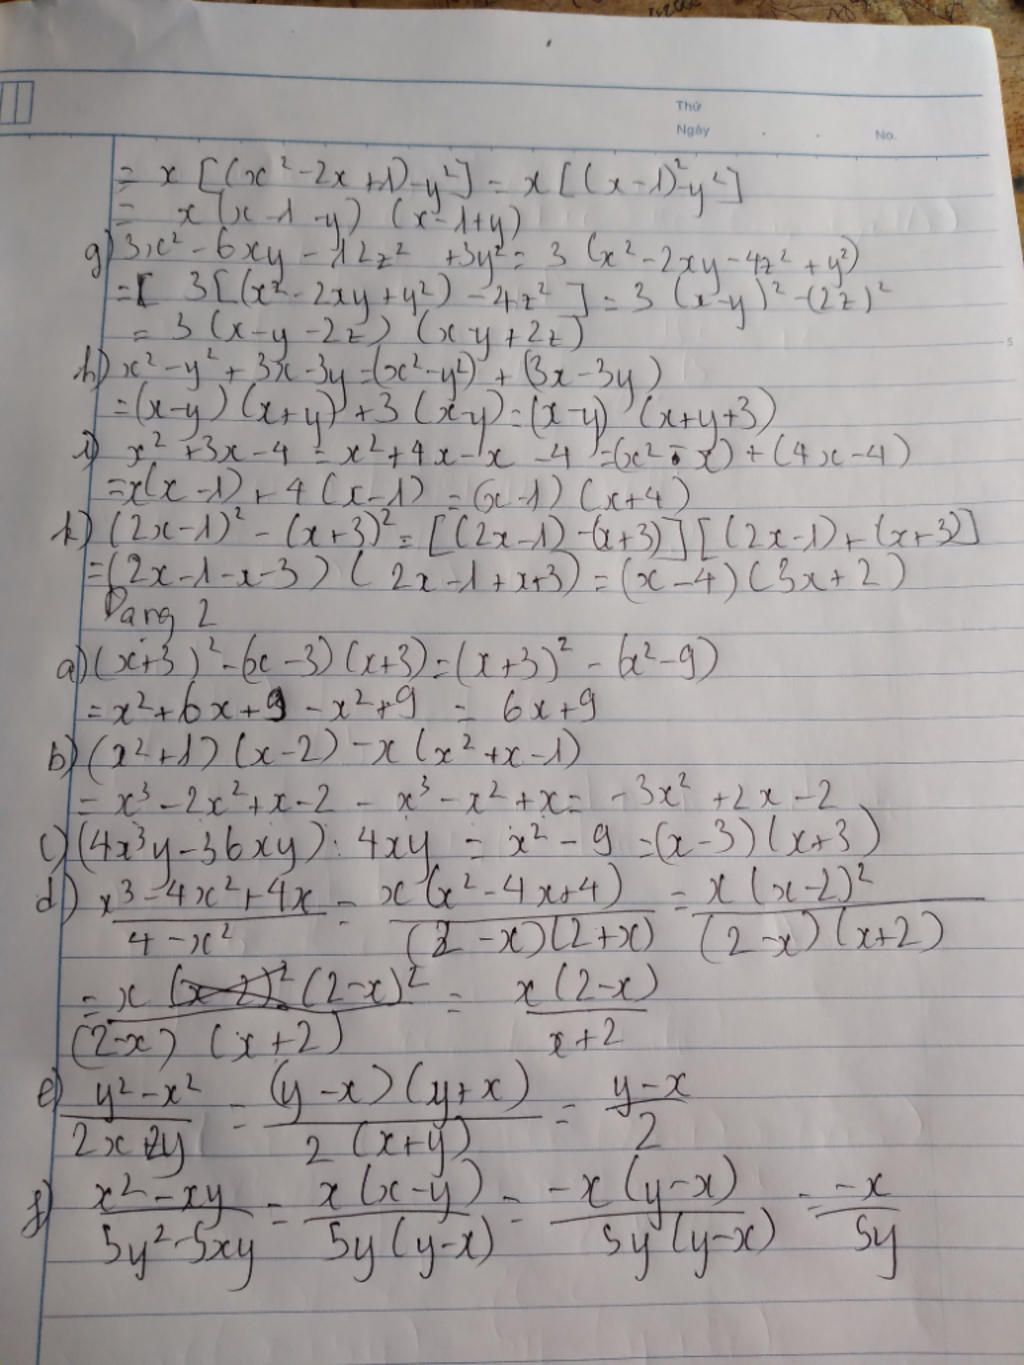 Thứ
Ngày . . No.
= x [(x² - 2x + 1) - y²] = x [(x - 1)² - y²]
= x (x - 1 - y) (x - 1 + y)
g) 3x² - 6xy - 12z² + 3y² = 3 (x² - 2xy - 4z² + y²)
= [ 3 [(x² - 2xy + y²) - 4z² ] = 3 (x - y)² - (2z)²
= 3 (x - y - 2z) (x - y + 2z)
h) x² - y² + 3x - 3y = (x² - y²) + (3x - 3y)
= (x - y) (x + y) + 3 (x - y) = (x - y) (x + y + 3)
i) x² + 3x - 4 = x² + 4x - x - 4 = (x² - x) + (4x - 4)
= x(x - 1) + 4 (x - 1) = (x - 1) (x + 4)
k) (2x - 1)² - (x + 3)² = [(2x - 1) - (x + 3)] [(2x - 1) + (x + 3)]
= (2x - 1 - x - 3) (2x - 1 + x + 3) = (x - 4) (3x + 2)
Dang 2
a) (x + 3)² - (x - 3) (x + 3) = (x + 3)² - (x² - 9)
= x² + 6x + 9 - x² + 9 = 6x + 9
b) (x² + 1) (x - 2) - x (x² + x - 1)
= x³ - 2x² + x - 2 - x³ - x² + x = -3x² + 2x - 2
c) (4x³y - 36xy) : 4xy = x² - 9 = (x - 3) (x + 3)
d) x³ - 4x² + 4x / 4 - x² = x (x² - 4x + 4) / (2 - x) (2 + x) = x (x - 2)² / (2 - x) (x + 2)
= x (x - 2)² (2 - x)² / (2 - x) (x + 2) = x (2 - x) / x + 2
e) y² - x² / 2x + 2y = (y - x) (y + x) / 2 (x + y) = y - x / 2
f) x² - xy / 5y² - 5xy = x (x - y) / 5y (y - x) = -x (y - x) / 5y (y - x) = -x / 5y
5